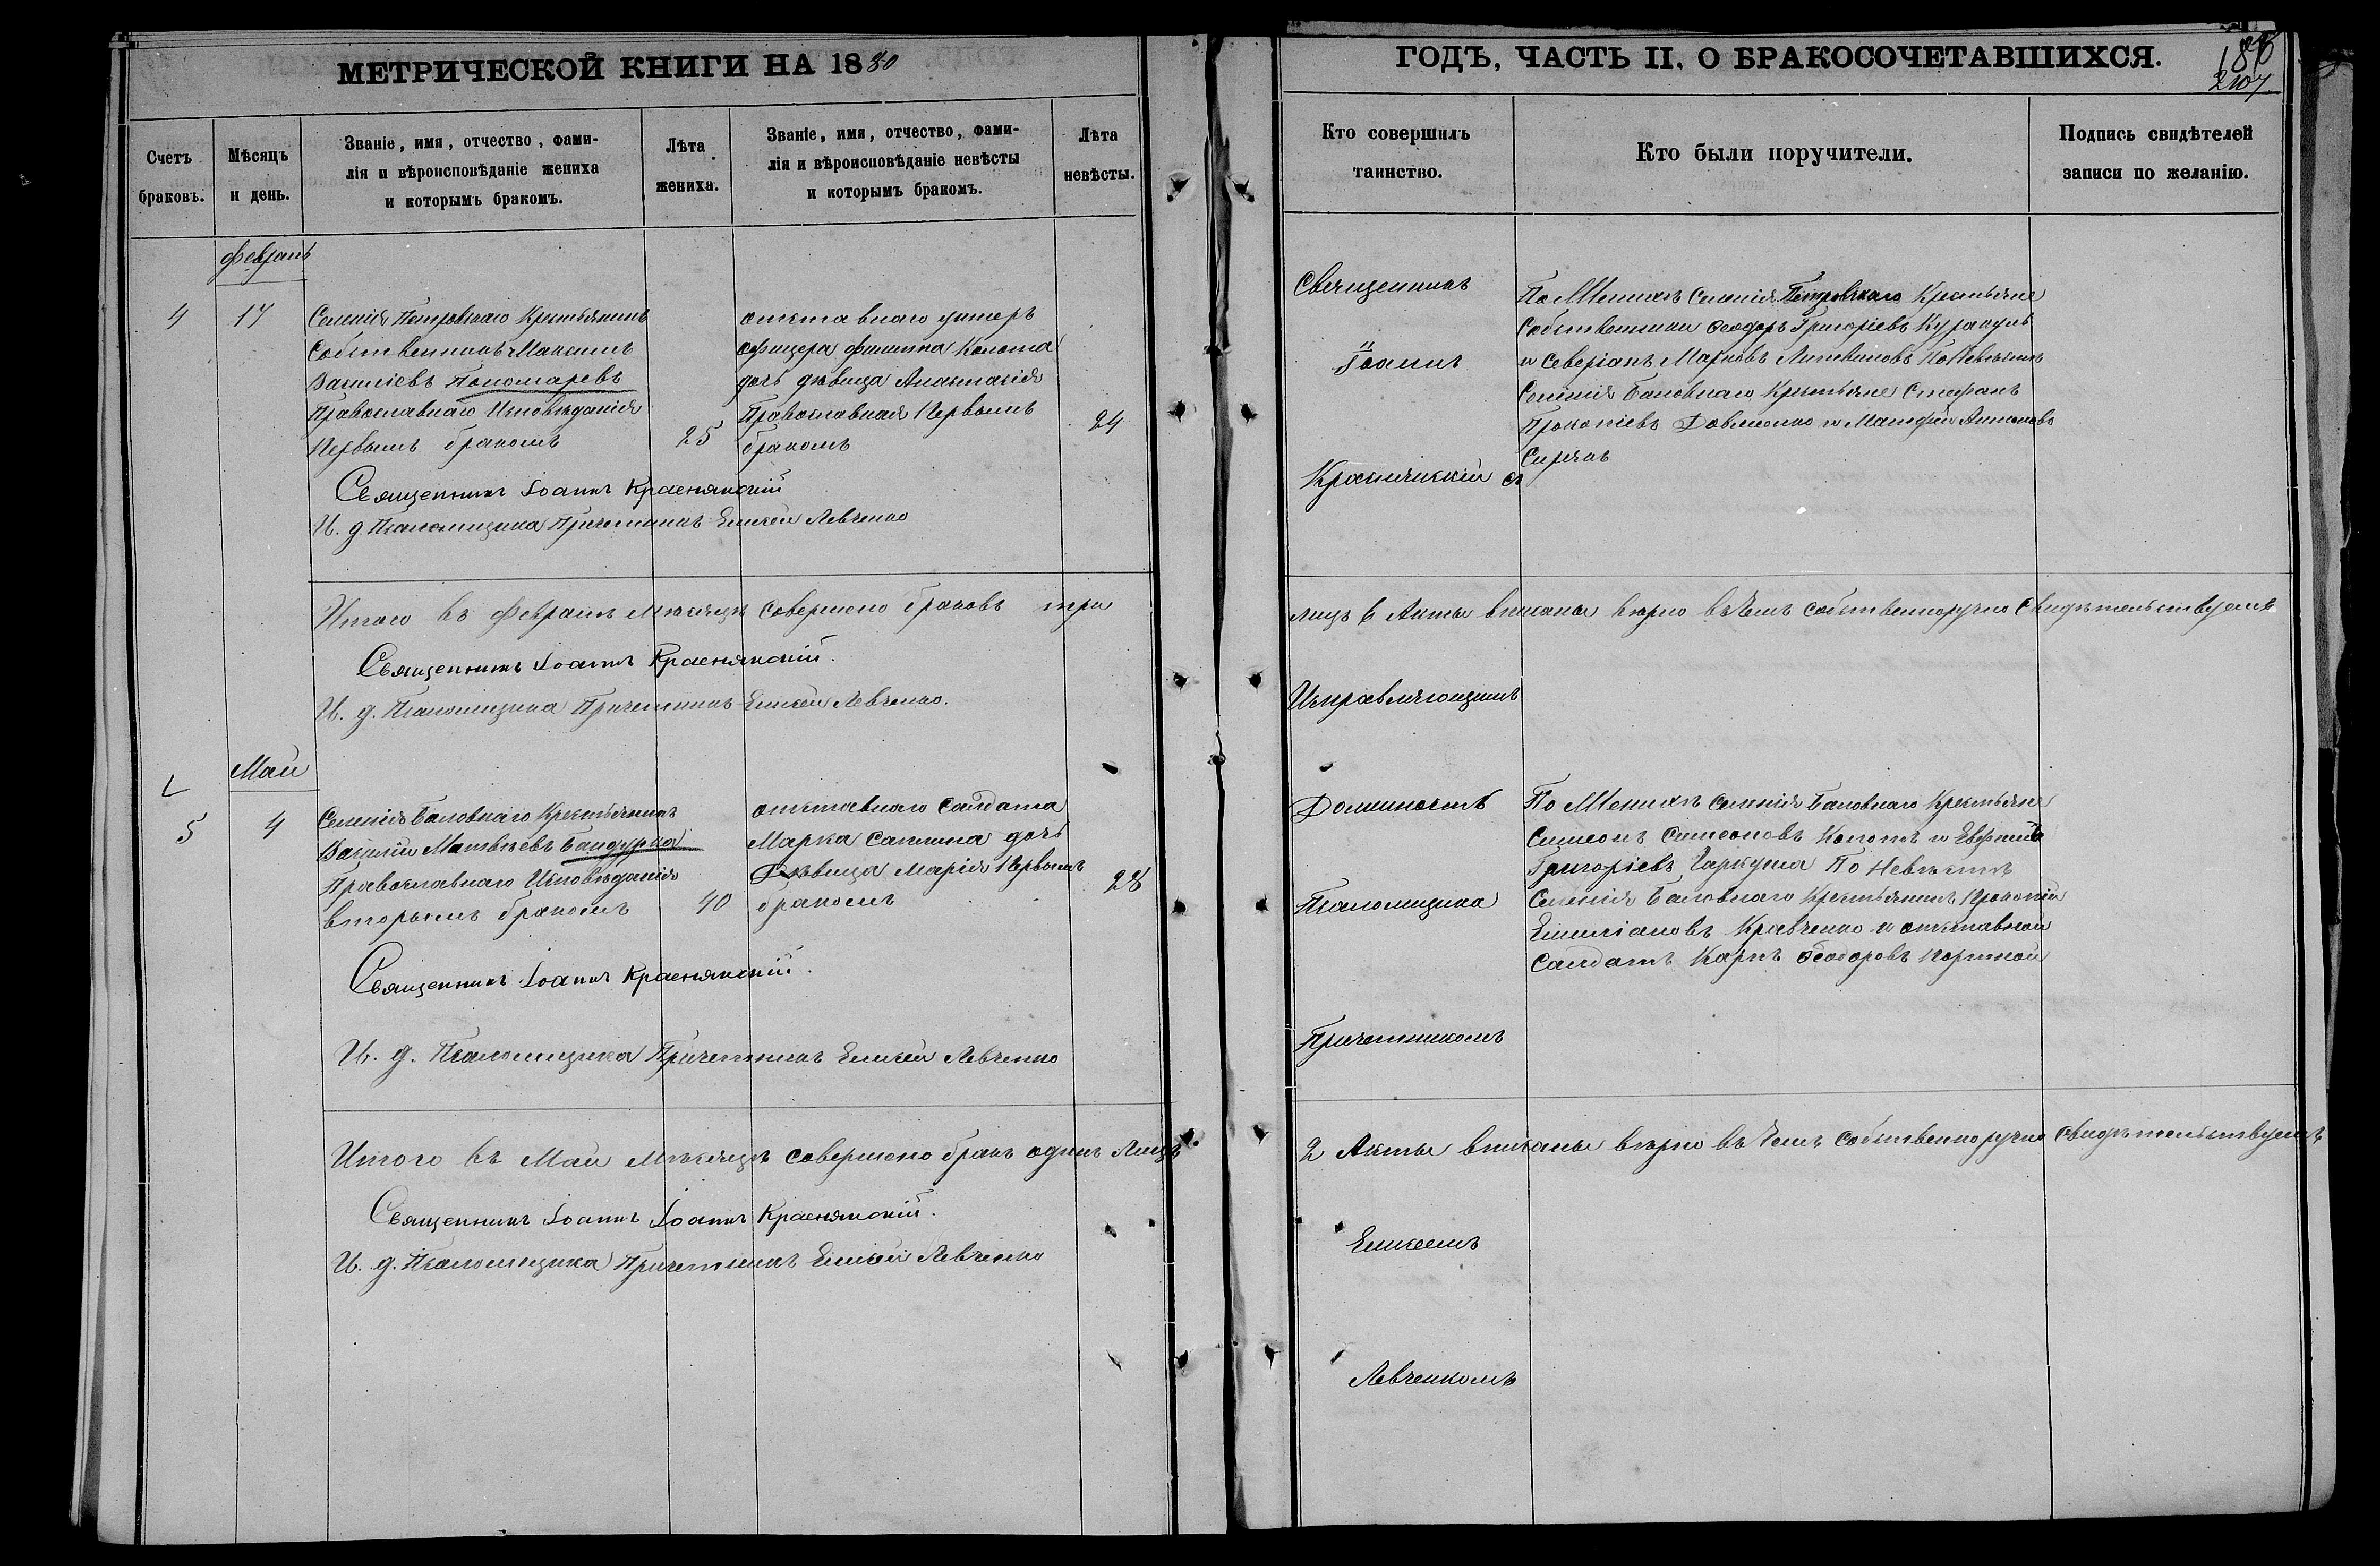 МЕТРИЧЕСКОЙ КНИГИ НА 1880
Счетъ браковъ.
Мѣсяцъ и день.
Званіе, имя, отчество, фами-
лія и вѣроисповѣданіе жениха
и которымъ бракомъ.
Лѣта жениха.
Званіе, имя, отчество, фами-
лія и вѣроисповѣданіе невѣсты
и которымъ бракомъ.
Лѣта невѣсты.
Февраль
4
17
Селенія Петровскаго Крестьянинъ
Собственникъ Максимъ
Василіевъ Пономаревъ
Православнаго Исповѣданія
Первымъ бракомъ
25
отставнаго унтеръ
офицера Филиппа Колота
дочь дѣвица Анастасія
Православная Первымъ
бракомъ
24
Священникъ Іоаннъ Краснянскій
И. д. Псаломщика Причетникъ Елисей Левченко
Итого въ Февралѣ Мѣсяцѣ совершено браковъ три
Священникъ Іоаннъ Краснянскій.
И. д. Псаломщика Причетникъ Елисей Левченко.
Май
5
4
Селенія Баловнаго Крестьянинъ
Василій Матвѣевъ Бандурка
Православнаго Исповѣданія
вторымъ бракомъ
40
отставнаго Салдата
Марка Саплина дочь
Дѣвица Марія Первымъ
бракомъ
28
Священникъ Іоаннъ Краснянскій.
И. д. Псаломщика Причетникъ Елисей Левченко
Итого въ Маѣ Мѣсяцѣ совершено бракъ одинъ Лицъ
Священникъ Іоаннъ Іоаннъ Краснянскій.
И. д. Псаломщика Причетникъ Елисей Левченко
ГОДЪ, ЧАСТЬ II, О БРАКОСОЧЕТАВШИХСЯ.
Кто совершилъ таинство.
Кто были поручители.
Подпись свидѣтелей
записи по желанію.
Священникъ
Іоаннъ
Краснянскій съ
По Женихѣ Селенія Петровскаго Крестьяне
Собственники Феодоръ Григоріевъ
и Северіанъ Марковъ Литвиновъ По Невѣстѣ
Селенія Баловнаго Крестьяне Стефанъ
Прокопіевъ Довженко и Матфей Антоновъ
лицъ 6 Акты вписаны вѣрно въ чемъ собственноручно свидѣтельствуемъ
Исправляющимъ
Должность
Псаломщика
Причетникомъ
По Женихѣ Селенія Баловнаго Крестьяне
Симеонъ Симеоновъ Колотъ и Евфимій
Григоріевъ Гаркуша По Невѣстѣ
Селенія Баловнаго Крестьянинъ Прокопій
Емиліановъ Кравченко и отставной
Салдатъ Карпъ Феодоровъ
2 Акты вписаны вѣрно въ чемъ собственноручно свидѣтельствуемъ
Елисеемъ
Левченкомъ